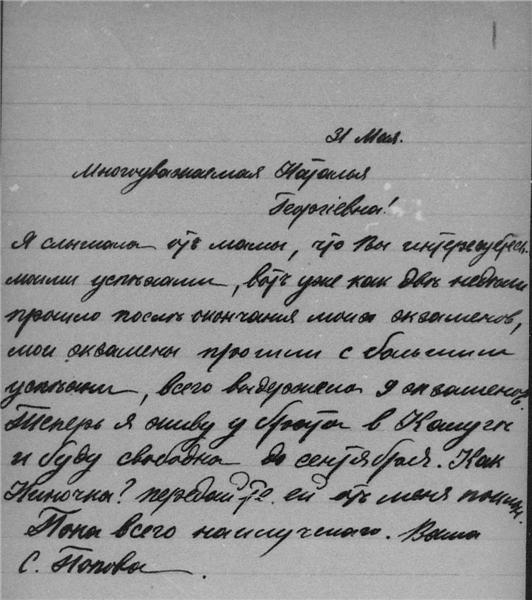 31 Мая.
Многоуважаемая Наталья
Георгіевна!
Я слышала отъ мамы, что Вы интересуетесь
моими успѣхами, вотъ уже какъ двѣ недѣли
прошло послѣ окончания моихъ экзаменов,
мои экзамены прошли с большими
успѣхами, всего выдержала 9 экзаменов.
Теперь я живу у брата в Калуге
и буду свободна до сентября. Как
Ниночка? передайте ей отъ меня
Пока всего наилучшаго. Ваша
С. Попова